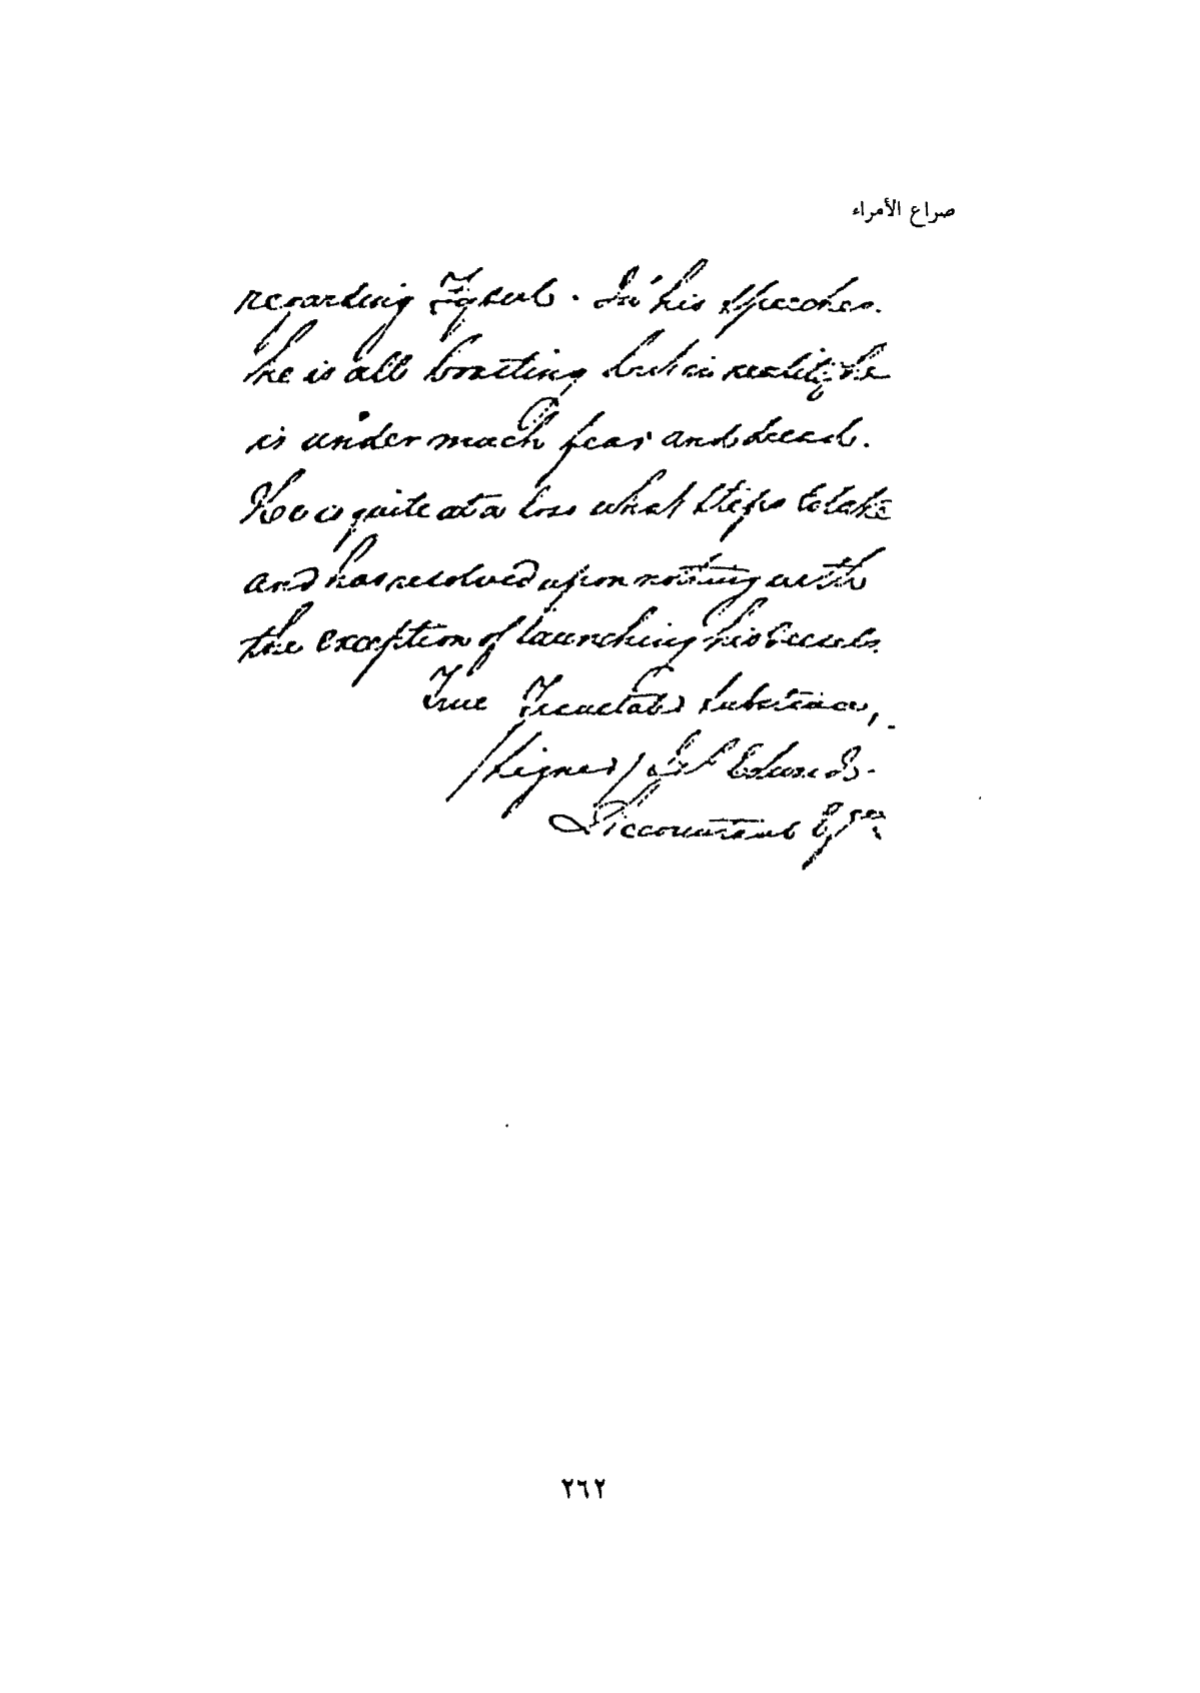 صراع الأمراء
regarding In his speeches
he is all boasting but in reality he
is under much fear and dread.
He is quite at a loss what steps to take
and has resolved upon nothing with
the exception of launching his vessels.
True Translated Substance,
(Signed)
Accountant
٢٦٢